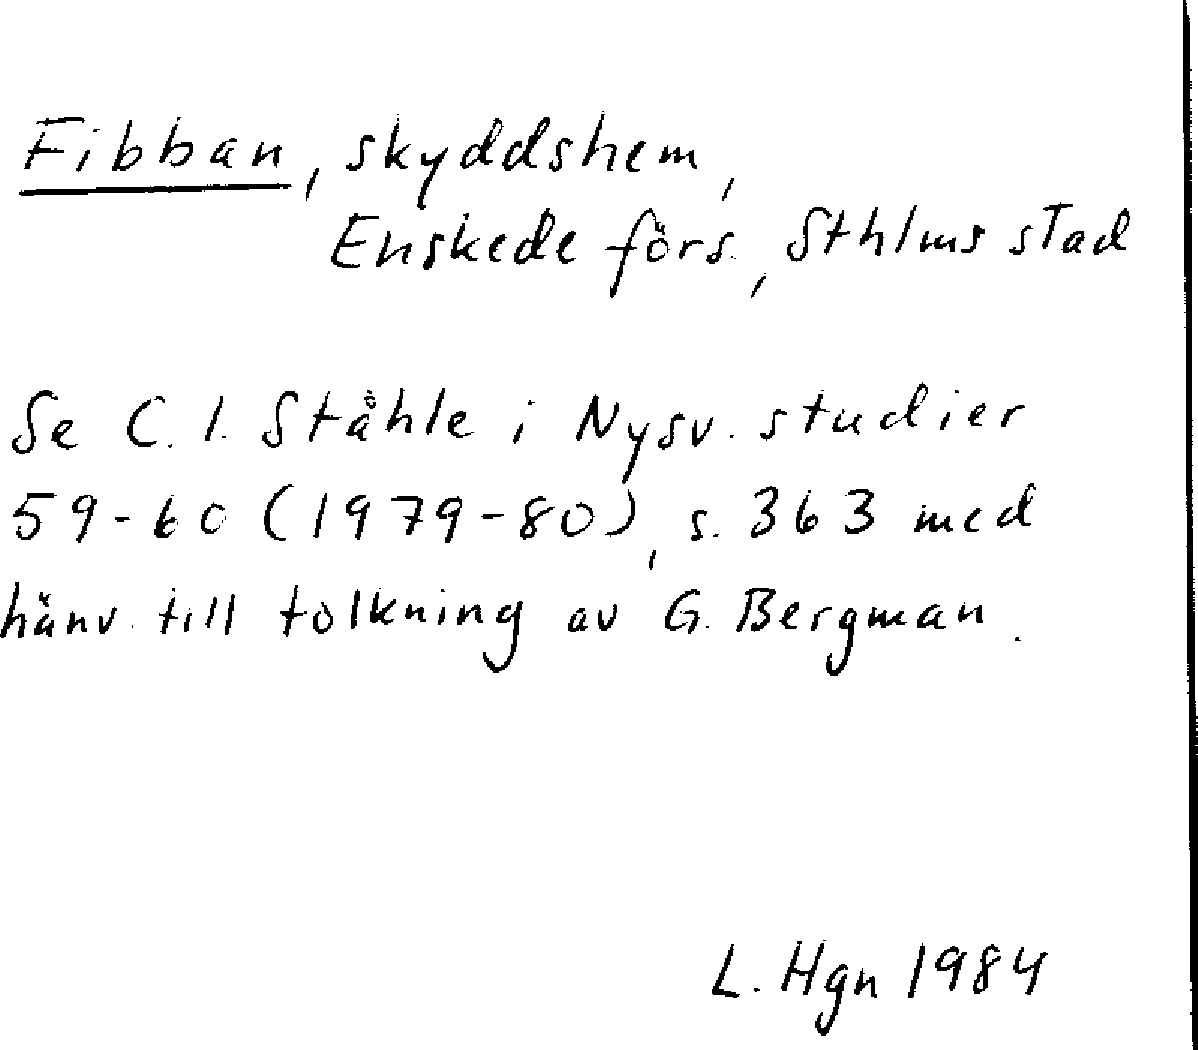 Fibban, skyddshem,
Enskede förs., Sthlms stad
Se C. I. Ståhle i Nysv. studier
59-60 (1979-80), s. 363 med
hänv. till tolkning av G. Bergman.
L. Hgn 1984